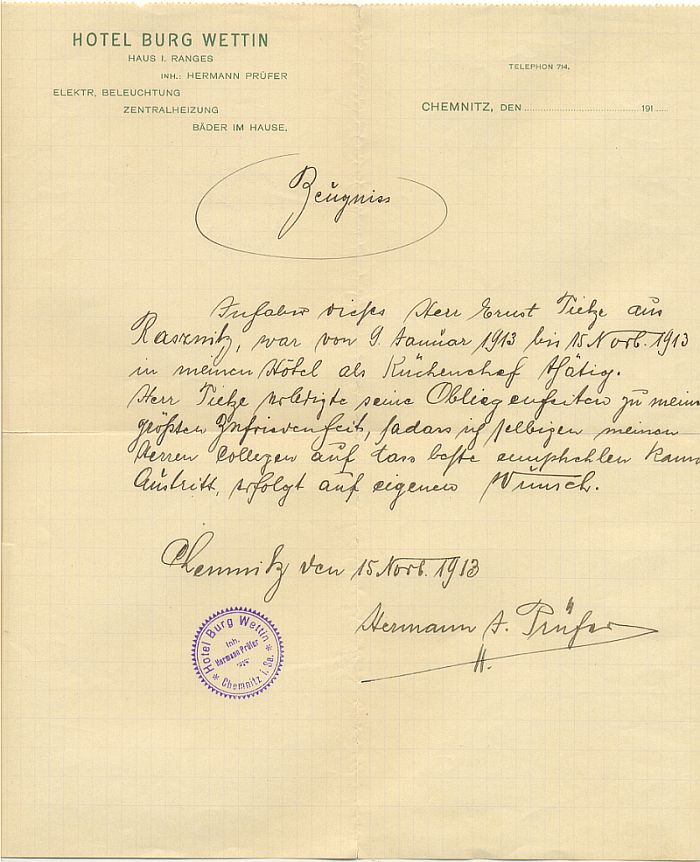 HOTEL BURG WETTIN
HAUS I. RANGES
INH.: HERMANN PRÜFER
ELEKTR. BELEUCHTUNG
ZENTRALHEIZUNG
BÄDER IM HAUSE.
TELEPHON 714.
CHEMNITZ, DEN 191
Zeugniss
Inhaber dieses Herr Ernst Tietze aus
Rasznitz, war von 9. Januar 1913 bis 15 Novb. 1913
in meinen Hôtel als Küchenchef thätig.
Herr Tietze erledigte seine Obliegenheiten zu meine
größten Zufriedenheit, sodass ich selbigen meinen
Herren Collegen auf dass beste empfehlen kann
Austritt, erfolgt auf eigenen Wunsch.
Chemnitz den 15 Novb. 1913
Hermann A. Prüfer
Hotel Burg Wettin
Inh.
Hermann Prüfer
* Chemnitz i. Sa. *